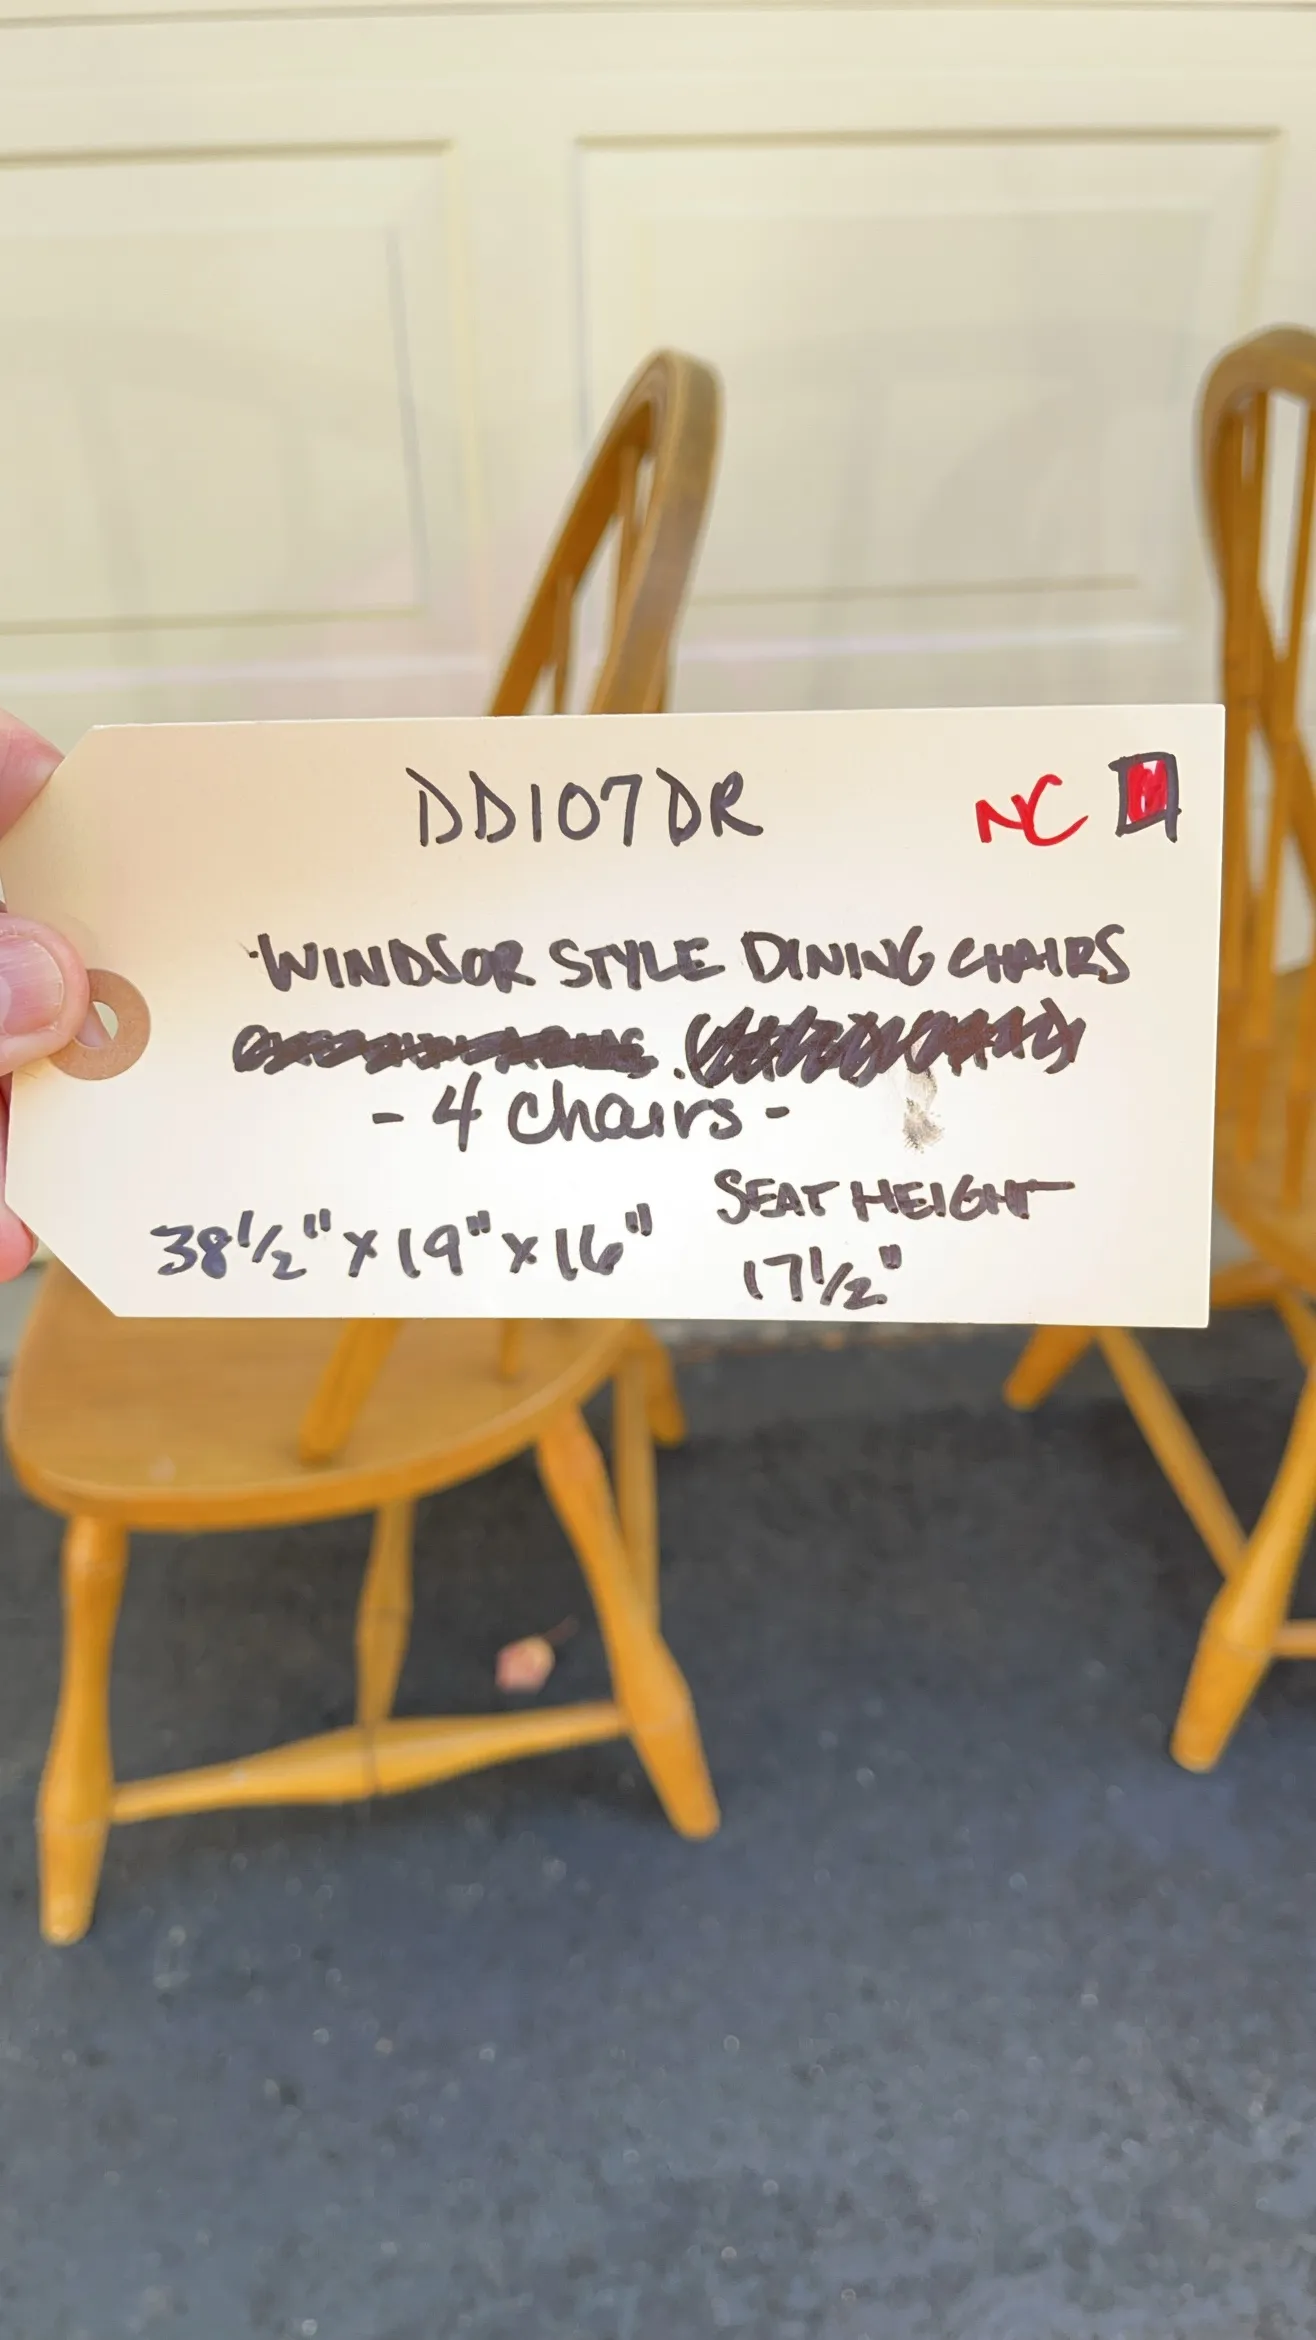 DD107DR
NC
WINDSOR STYLE DINING CHAIRS
- 4 chairs -
38 1/2" x 19" x 16"
SEAT HEIGHT
17 1/2"